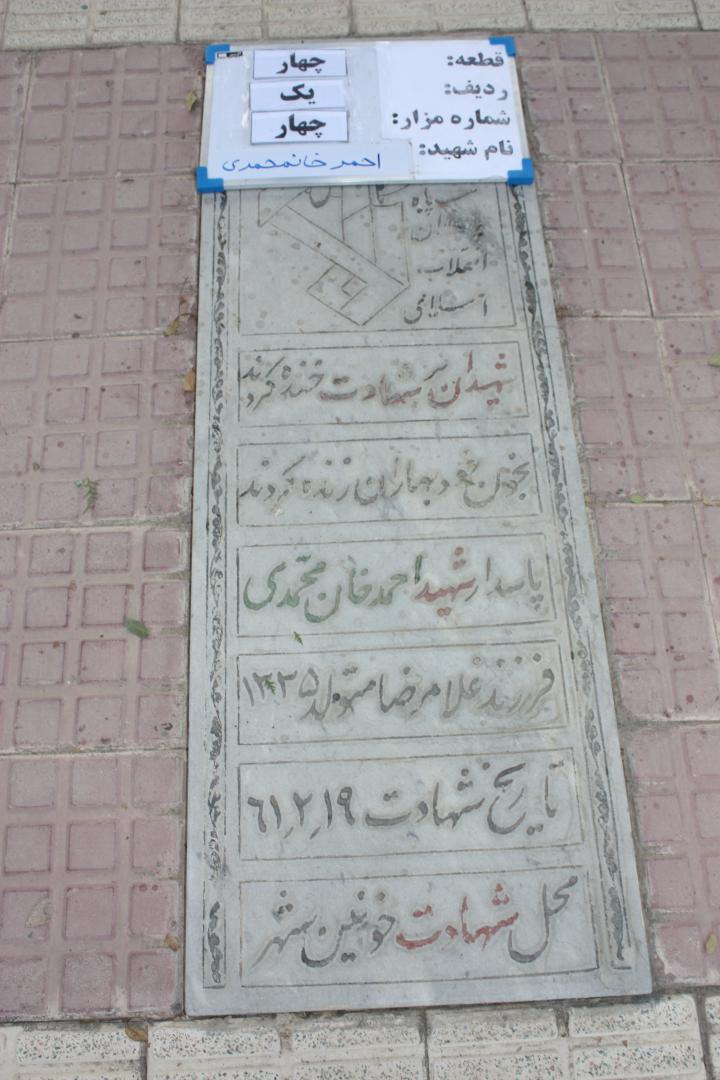 قطعه: چهار
ردیف: یک
شماره مزار: چهار
نام شهید: احمد خانمحمدی
سپاه
پاسداران
انقلاب
اسلامی
شهیدان بر شهادت خنده کردند
بخون خود بهاران زنده کردند
پاسدار شهید احمد خان محمدی
فرزند غلامرضا متولد ۱۳۳۵
تاریخ شهادت ۶۱٫۲٫۱۹
محل شهادت خونین شهر